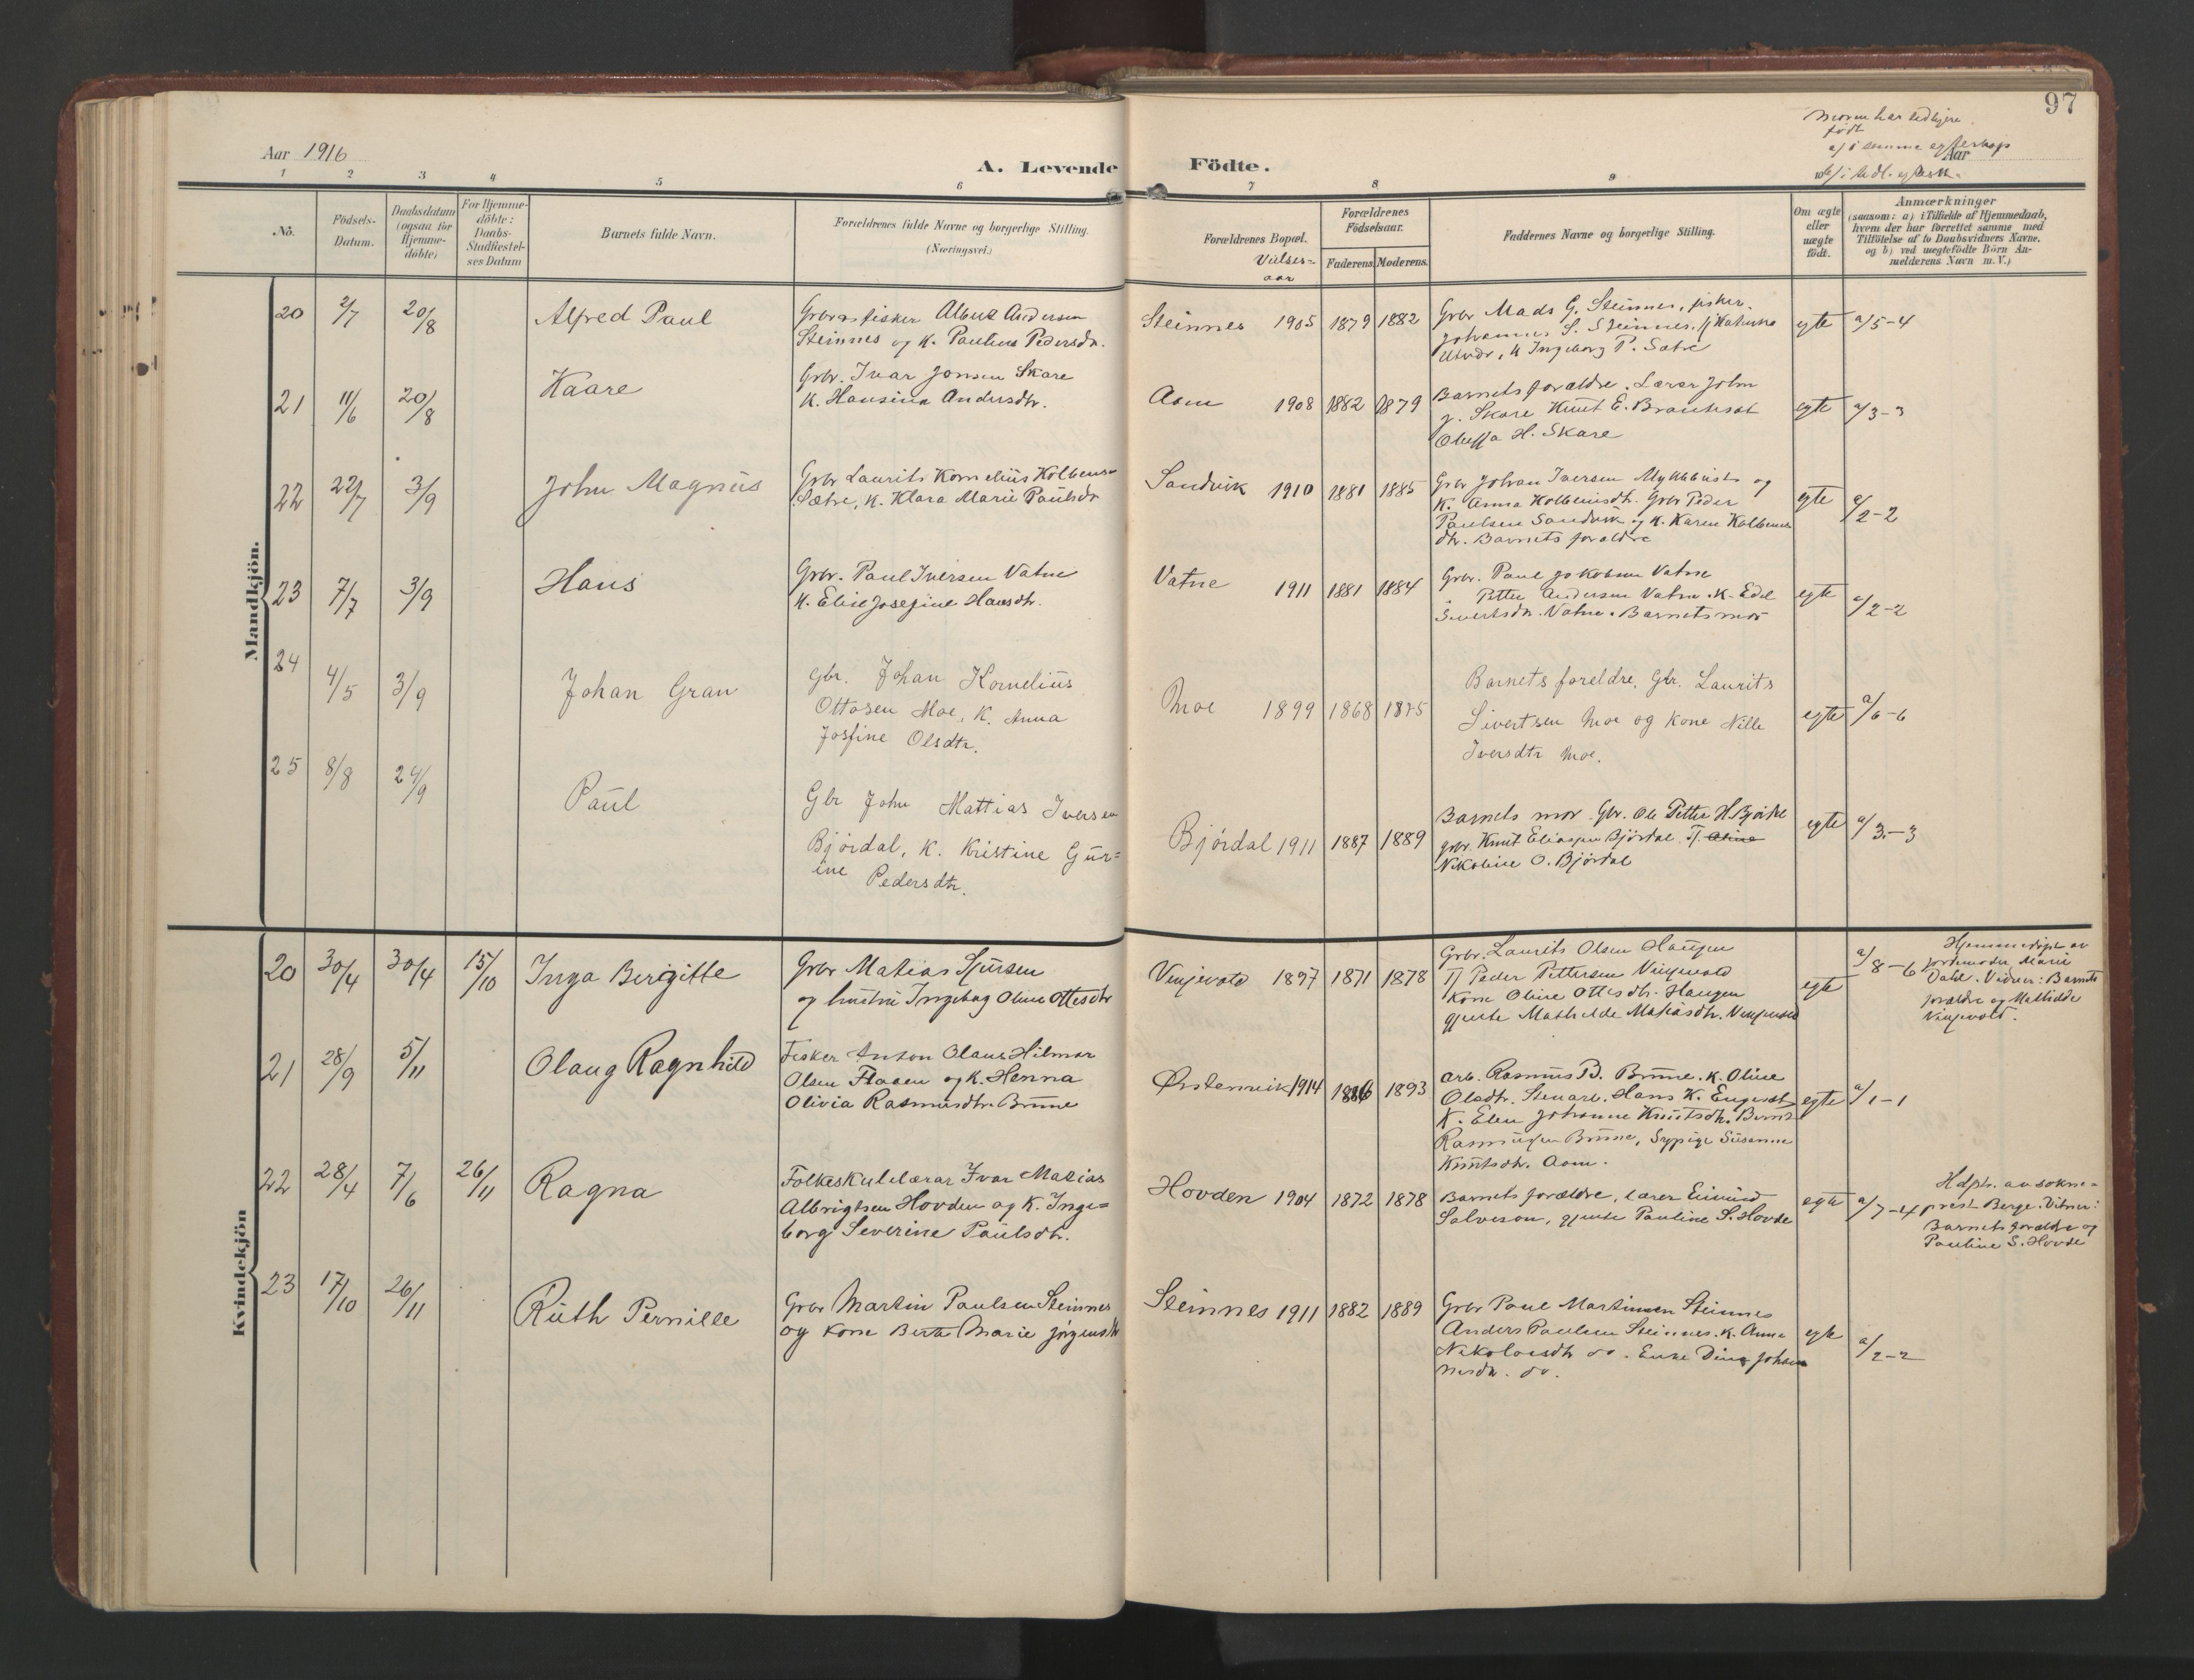 97
Aar 1916
A. Levende Födte.
Aar
1 2 3 4 5 6 7 8 9
No.
Födsels-Datum.
Daabsdatum (ogsaa for Hjemme-döbte)
For Hjemme-döbte: Daabs-Stadfæstel-ses Datum
Barnets fulde Navn.
Forældrenes fulde Navne og borgerlige Stilling. (Næringsvei.)
Forældrenes Bopæl.
Vielses-aar
Forældrenes Födselsaar.
Faderens. Moderens.
Faddernes Navne og borgerlige Stilling.
Om ægte eller uægte födt.
Anmærkninger
(saasom: a) i Tilfælde af Hjemmedaab, hvem der har forrettet samme med Tilföielse af to Daabsvidners Navne, og b) ved uægtefödte Börn An-melderens Navn m. V.)
Moren har tidligere
født
a/ i samme egteskap
Mandkjön.
20 2/7 20/8 Alfred Paul
Steinnes og K. Pauline Pedersdr.
Steinnes 1905 1879 1882
Gbr Mads G. Steinnes, fisker
egte a/5-4
21 11/6 20/8 Kaare
Gbr. Ivar Jonsen Skare
K. Hansine Andersdtr.
Aam 1908 1882 1879
Barnets forældre. Lærer John
J. Skare Knut E. Brauteset
H. Skare
egte a/3-3
22 22/7 3/9 John Magnus
Gbr Laurits Kornelius Kolbens.
Sætre, K. Klara Marie Paulsdr
Sandvik 1910 1881 1885
Gbr Johan Iversen Myklebust og
K. Anna Kolbeinsdtr. Gbr Peder
Paulsen Sandvik og K. Karen Kolbens
dtr. Barnets forældre
egte a/2-2
23 7/7 3/9 Hans
Gbr. Paul Iversen Vatne
K. Elise Josefine Hansdtr.
Vatne 1911 1881 1884
Gbr. Paul Jakobsen Vatne
Petter Andersen Vatne. K. Edel
Sivertsdr. Vatne. Barnets mor
egte a/2-2
24 4/5 3/9 Johan Gran
Gbr. Johan Kornelius
Ottosen Moe, K. Anna
Josfine Olsdtr.
Moe 1899 1868 1875
Barnets foreldre, Gbr. Laurits
Sivertsen Moe og kone Nille
Iversdtr Moe.
egte a/6-6
25 8/8 24/9 Paul
Gbr John Mattias Iversen
Björdal, K. Kristine Gur=
ine Pedersdtr.
Bjórdal 1911 1887 1889
Barnets mor. Gbr. Ole Petter H. Bjørke
gbr. Knut Eliassen Bjórdal
Nikoline O. Bjórdal
egte a/3-3
Kvindekjön
20 30/4 30/4 15/10 Inga Berigitte
Gbr Matias Sjursen
og hustru Ingeborg Oline Ottesdtr
Vinjevold 1897 1871 1878
Gbr. Laurits Olsen Haugen
Peder Pettersen Vinjevold
Kone Oline Ottesdtr. Haugen
gjente Mathilde Matiasdtr. Vinjevold
egte a/8-6
Hjemmedøpt av
jordmoder Marie
Dahl. Vidner: Barnets
forældre og Mathilde
Vinjevold.
21 28/9 5/11 Olaug Ragnhild
Fisker Anton Olaus Hilmar
Olsen Flaaen og K. Hanna
Olivia Rasmusdtr. Brune
Ørstenvik 1914 1886 1893
arb. Rasmus B. Brune. K. Oline
Olsdtr. Stenarb. Hans K. Engeset
K. Elen Johanne Knutsdtr. Bernt
Rasmussen Brune, Sypige Susanne
Knutsdtr. Aam.
egte a/1-1
22 28/4 7/6 26/11 Ragna
Folkeskulelærar Ivar Matias
Albrigtsen Hovden og K. Inge=
borg Severine Paulsdtr.
Hovden 1904 1872 1878
Barnets forældre, lærer Eivind
Salveson, gjente Pauline S. Hovde
egte a/7-4
Hdpt. av sokne=
prest Berge. Vitner:
Barnets forældre og
Pauline S. Hovde
23 17/10 26/11 Ruth Pernille
Gbr Martin Paulsen Steinnes
og kone Berte Marie Jørgensdtr
Steinnes 1911 1882 1889
Gbr Paul Martinsen Steinnes
Anders Paulsen Steinnes. K. Anna
Nikolaisdtr do. Enke Dina Johan
nesdr. do.
egte a/2-2